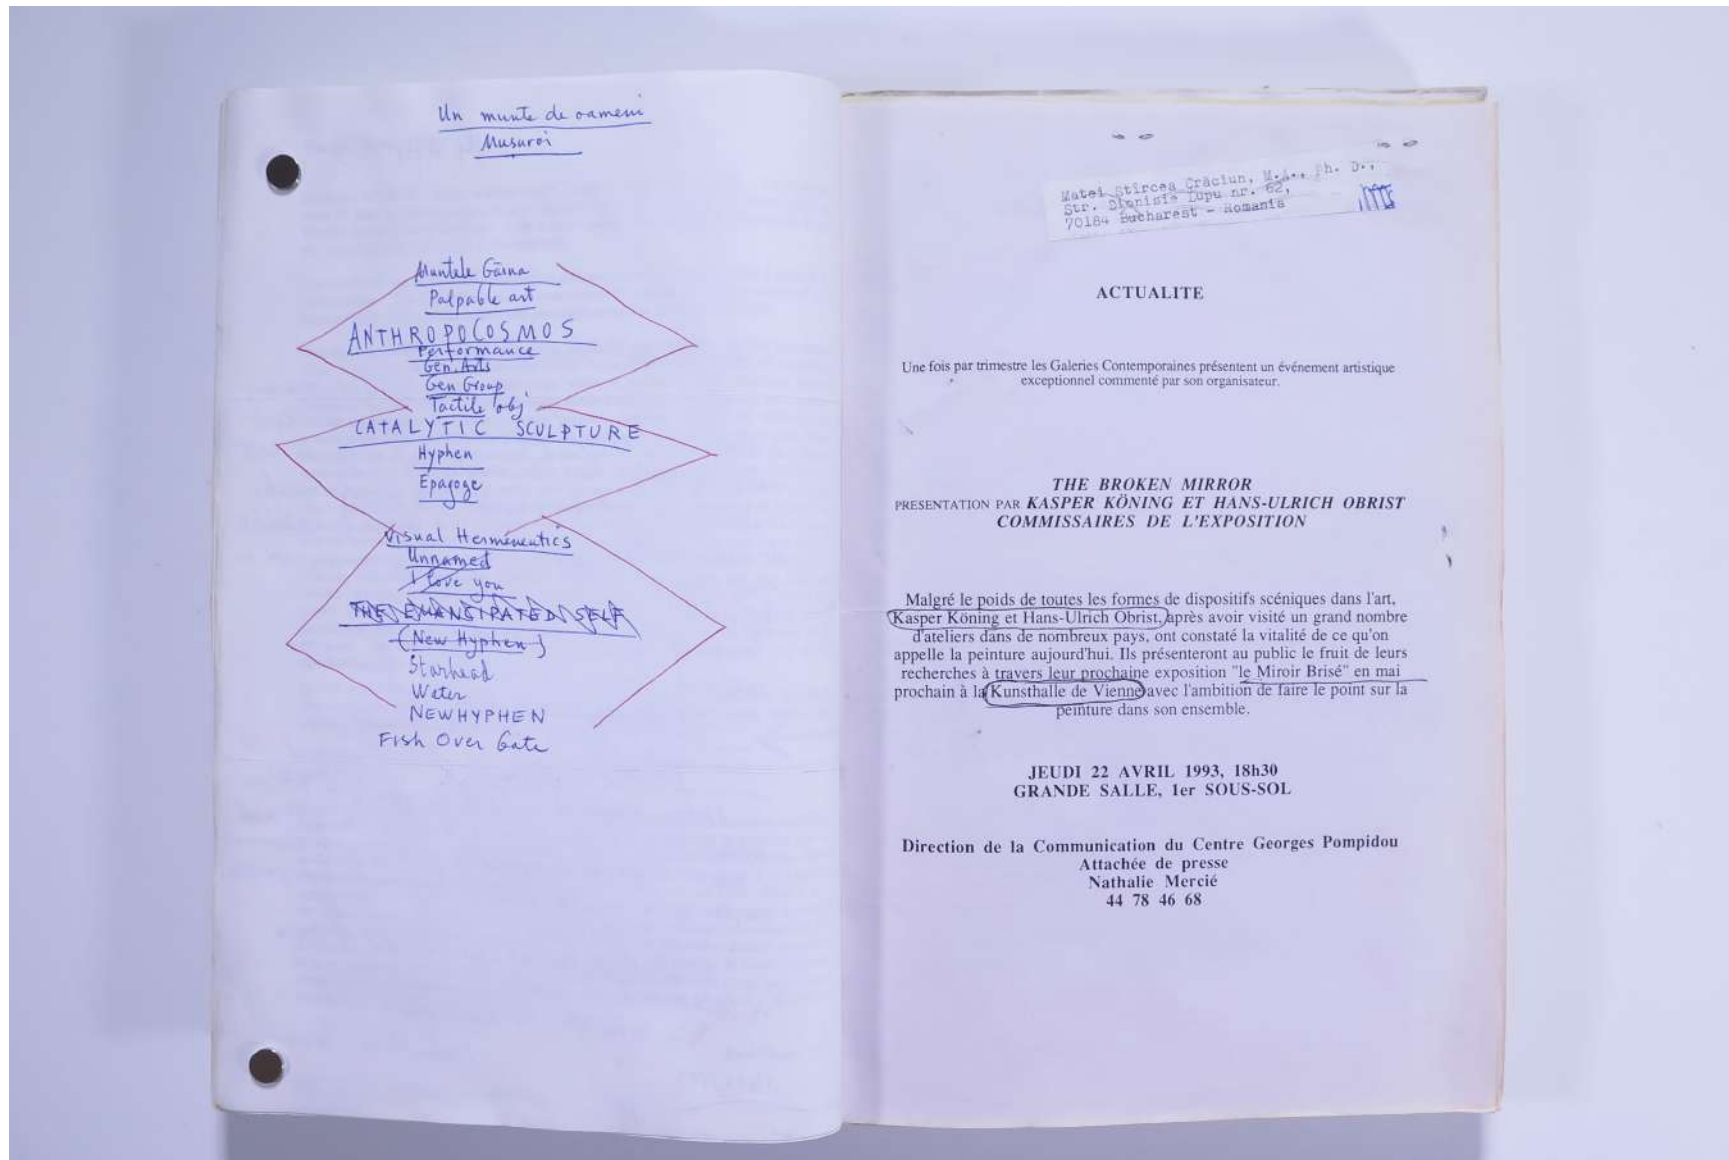 Un munte de oameni
Musuroi
Muntele Găina
Palpable art
ANTHROPOCOSMOS
Performance
Gen. Arts
Gen Group
Tactile obj
CATALYTIC SCULPTURE
Hyphen
Epagoge
Visual Hermeneutics
Unnamed
I love you
THE EMANCIPATED SELF
(New Hyphen)
Starhead
Water
NEWHYPHEN
Fish Over Gate
Matei Stîrcea Crăciun, M.A., Ph. D.,
Str. Dionisie Lupu nr. 62,
70184 Bucharest - Romania
ACTUALITE
Une fois par trimestre les Galeries Contemporaines présentent un événement artistique
exceptionnel commenté par son organisateur.
THE BROKEN MIRROR
PRESENTATION PAR KASPER KÖNING ET HANS-ULRICH OBRIST
COMMISSAIRES DE L'EXPOSITION
Malgré le poids de toutes les formes de dispositifs scéniques dans l'art,
Kasper Köning et Hans-Ulrich Obrist, après avoir visité un grand nombre
d'ateliers dans de nombreux pays, ont constaté la vitalité de ce qu'on
appelle la peinture aujourd'hui. Ils présenteront au public le fruit de leurs
recherches à travers leur prochaine exposition "le Miroir Brisé" en mai
prochain à la Kunsthalle de Vienne avec l'ambition de faire le point sur la
peinture dans son ensemble.
JEUDI 22 AVRIL 1993, 18h30
GRANDE SALLE, 1er SOUS-SOL
Direction de la Communication du Centre Georges Pompidou
Attachée de presse
Nathalie Mercié
44 78 46 68